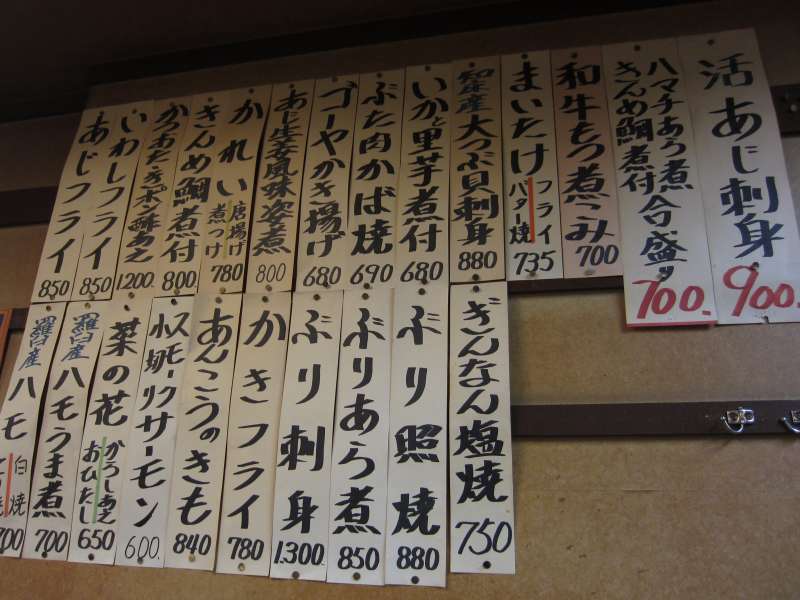 活あじ刺身
900.
ハマチあら煮
きんめ鯛煮付
合盛り
700.
和牛もつ煮こみ
700
まいたけ
フライ
バター焼
735
知床産大つぶ貝刺身
880
いかと里芋煮付
680
ぶた肉かば焼
690
ゴーヤかき揚げ
680
あじ生姜風味姿煮
800
かれい
唐揚げ
煮つけ
780
きんめ鯛煮付
800.
かつおたたきポン酢あえ
1.200.
いわしフライ
850
あじフライ
850
ぎんなん塩焼
750
ぶり照焼
880
ぶりあら煮
850
ぶり刺身
1.300.
かきフライ
780
あんこうのきも
840
スモークサーモン
600.
菜の花
からしあえ
おひたし
650
羅臼産
ハモうま煮
700
羅臼産
ハモ
白焼
700